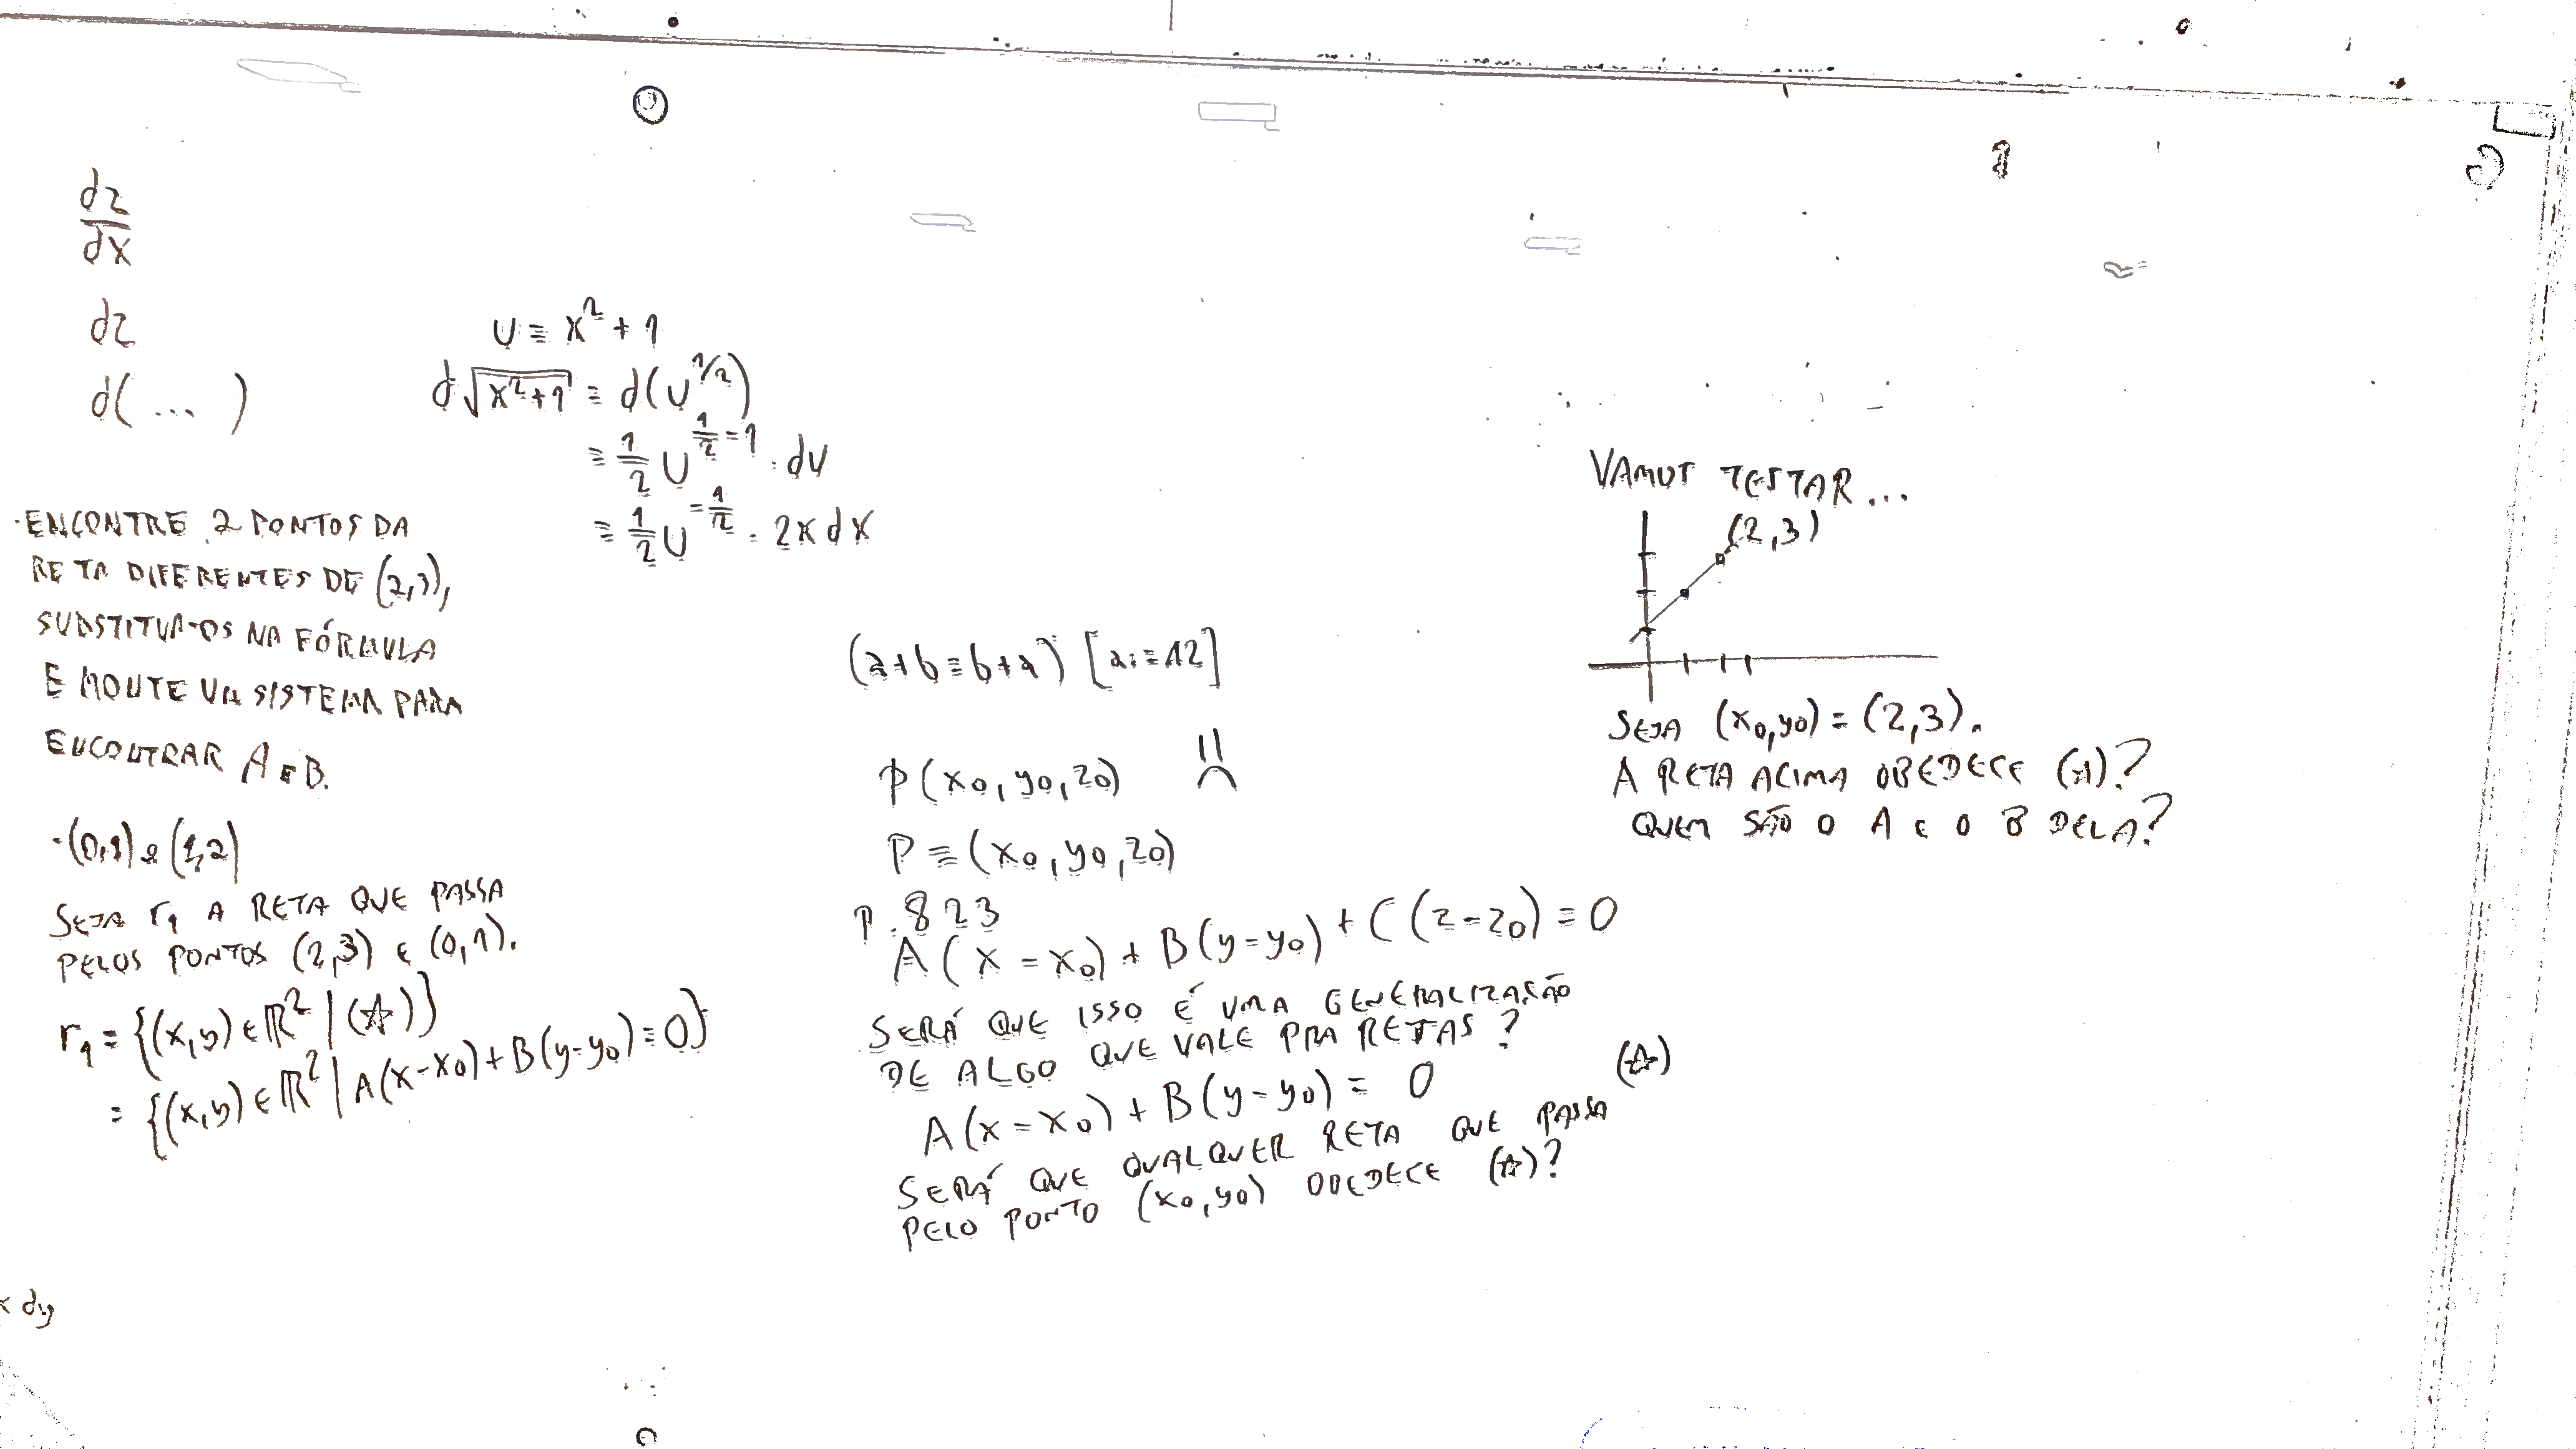 dz
dx
dz
d(...)
u = x² + 1
d√x²+1 = d(u^1/2)
= 1/2 u^1/2-1 · du
= 1/2 u^-1/2 · 2x dx
· ENCONTRE 2 PONTOS DA
RETA DIFERENTES DE (2,3),
SUBSTITUA-OS NA FÓRMULA
E MONTE UM SISTEMA PARA
ENCONTRAR A E B.
· (0,1) e (1,2)
SEJA r₁ A RETA QUE PASSA
PELOS PONTOS (2,3) E (0,1).
r₁ = {(x,y) ∈ ℝ² | (☆)}
= {(x,y) ∈ ℝ² | A(x-x₀) + B(y-y₀) = 0}
x dy
(a+b=b+a) [a:=42]
P(x₀, y₀, z₀)
P = (x₀, y₀, z₀)
P. 823
A(x-x₀) + B(y-y₀) + C(z-z₀) = 0
SERÁ QUE ISSO É UMA GENERALIZAÇÃO
DE ALGO QUE VALE PRA RETAS?
A(x-x₀) + B(y-y₀) = 0 (☆)
SERÁ QUE QUALQUER RETA QUE PASSA
PELO PONTO (x₀, y₀) OBEDECE (☆)?
VAMOS TESTAR...
(2,3)
SEJA (x₀,y₀) = (2,3).
A RETA ACIMA OBEDECE (☆)?
QUEM SÃO O A E O B DELA?